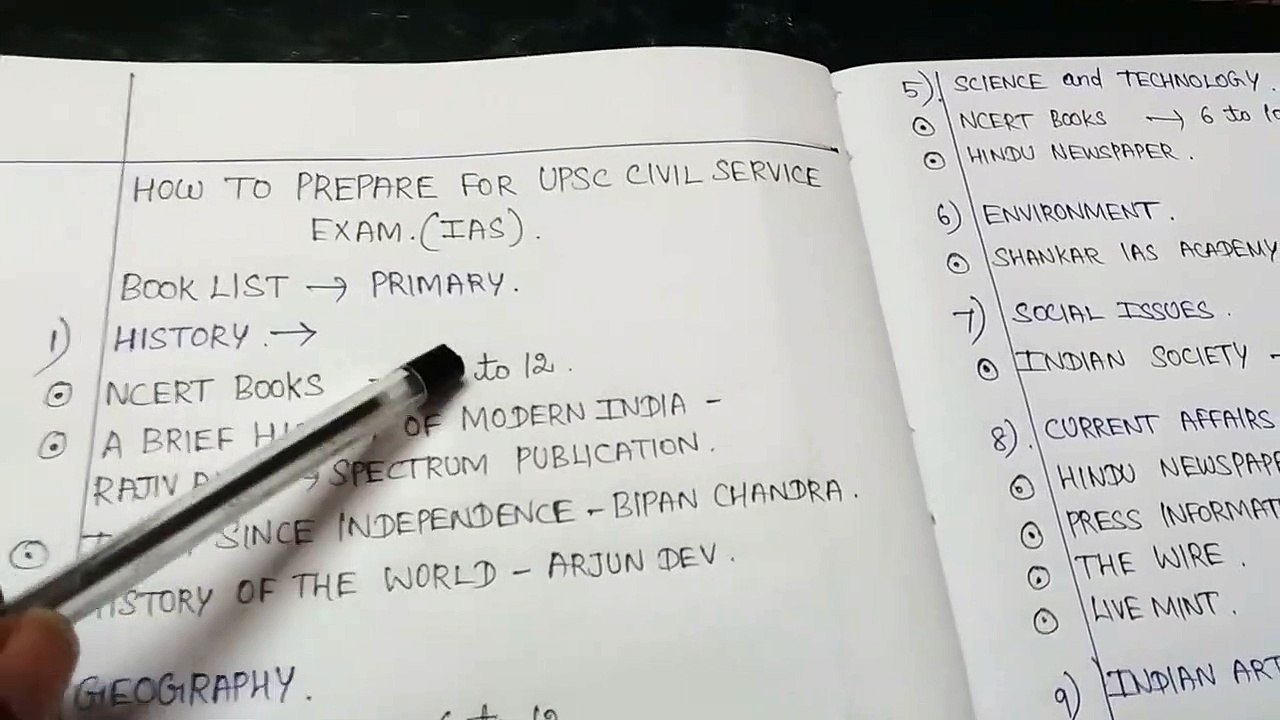 HOW TO PREPARE FOR UPSC CIVIL SERVICE
EXAM.(IAS).
BOOK LIST → PRIMARY.
1) HISTORY. →
⊙ NCERT BOOKS to 12.
⊙ A BRIEF OF MODERN INDIA -
RAJIV → SPECTRUM PUBLICATION.
⊙ SINCE INDEPENDENCE - BIPAN CHANDRA.
HISTORY OF THE WORLD - ARJUN DEV.
GEOGRAPHY.
to 12
5) SCIENCE and TECHNOLOGY.
⊙ NCERT BOOKS → 6 to 10
⊙ HINDU NEWSPAPER.
6) ENVIRONMENT.
⊙ SHANKAR IAS ACADEMY
7) SOCIAL ISSUES.
⊙ INDIAN SOCIETY -
8). CURRENT AFFAIRS
⊙ HINDU NEWSPAPE
⊙ PRESS INFORMAT
⊙ THE WIRE.
⊙ LIVE MINT.
9) INDIAN ART